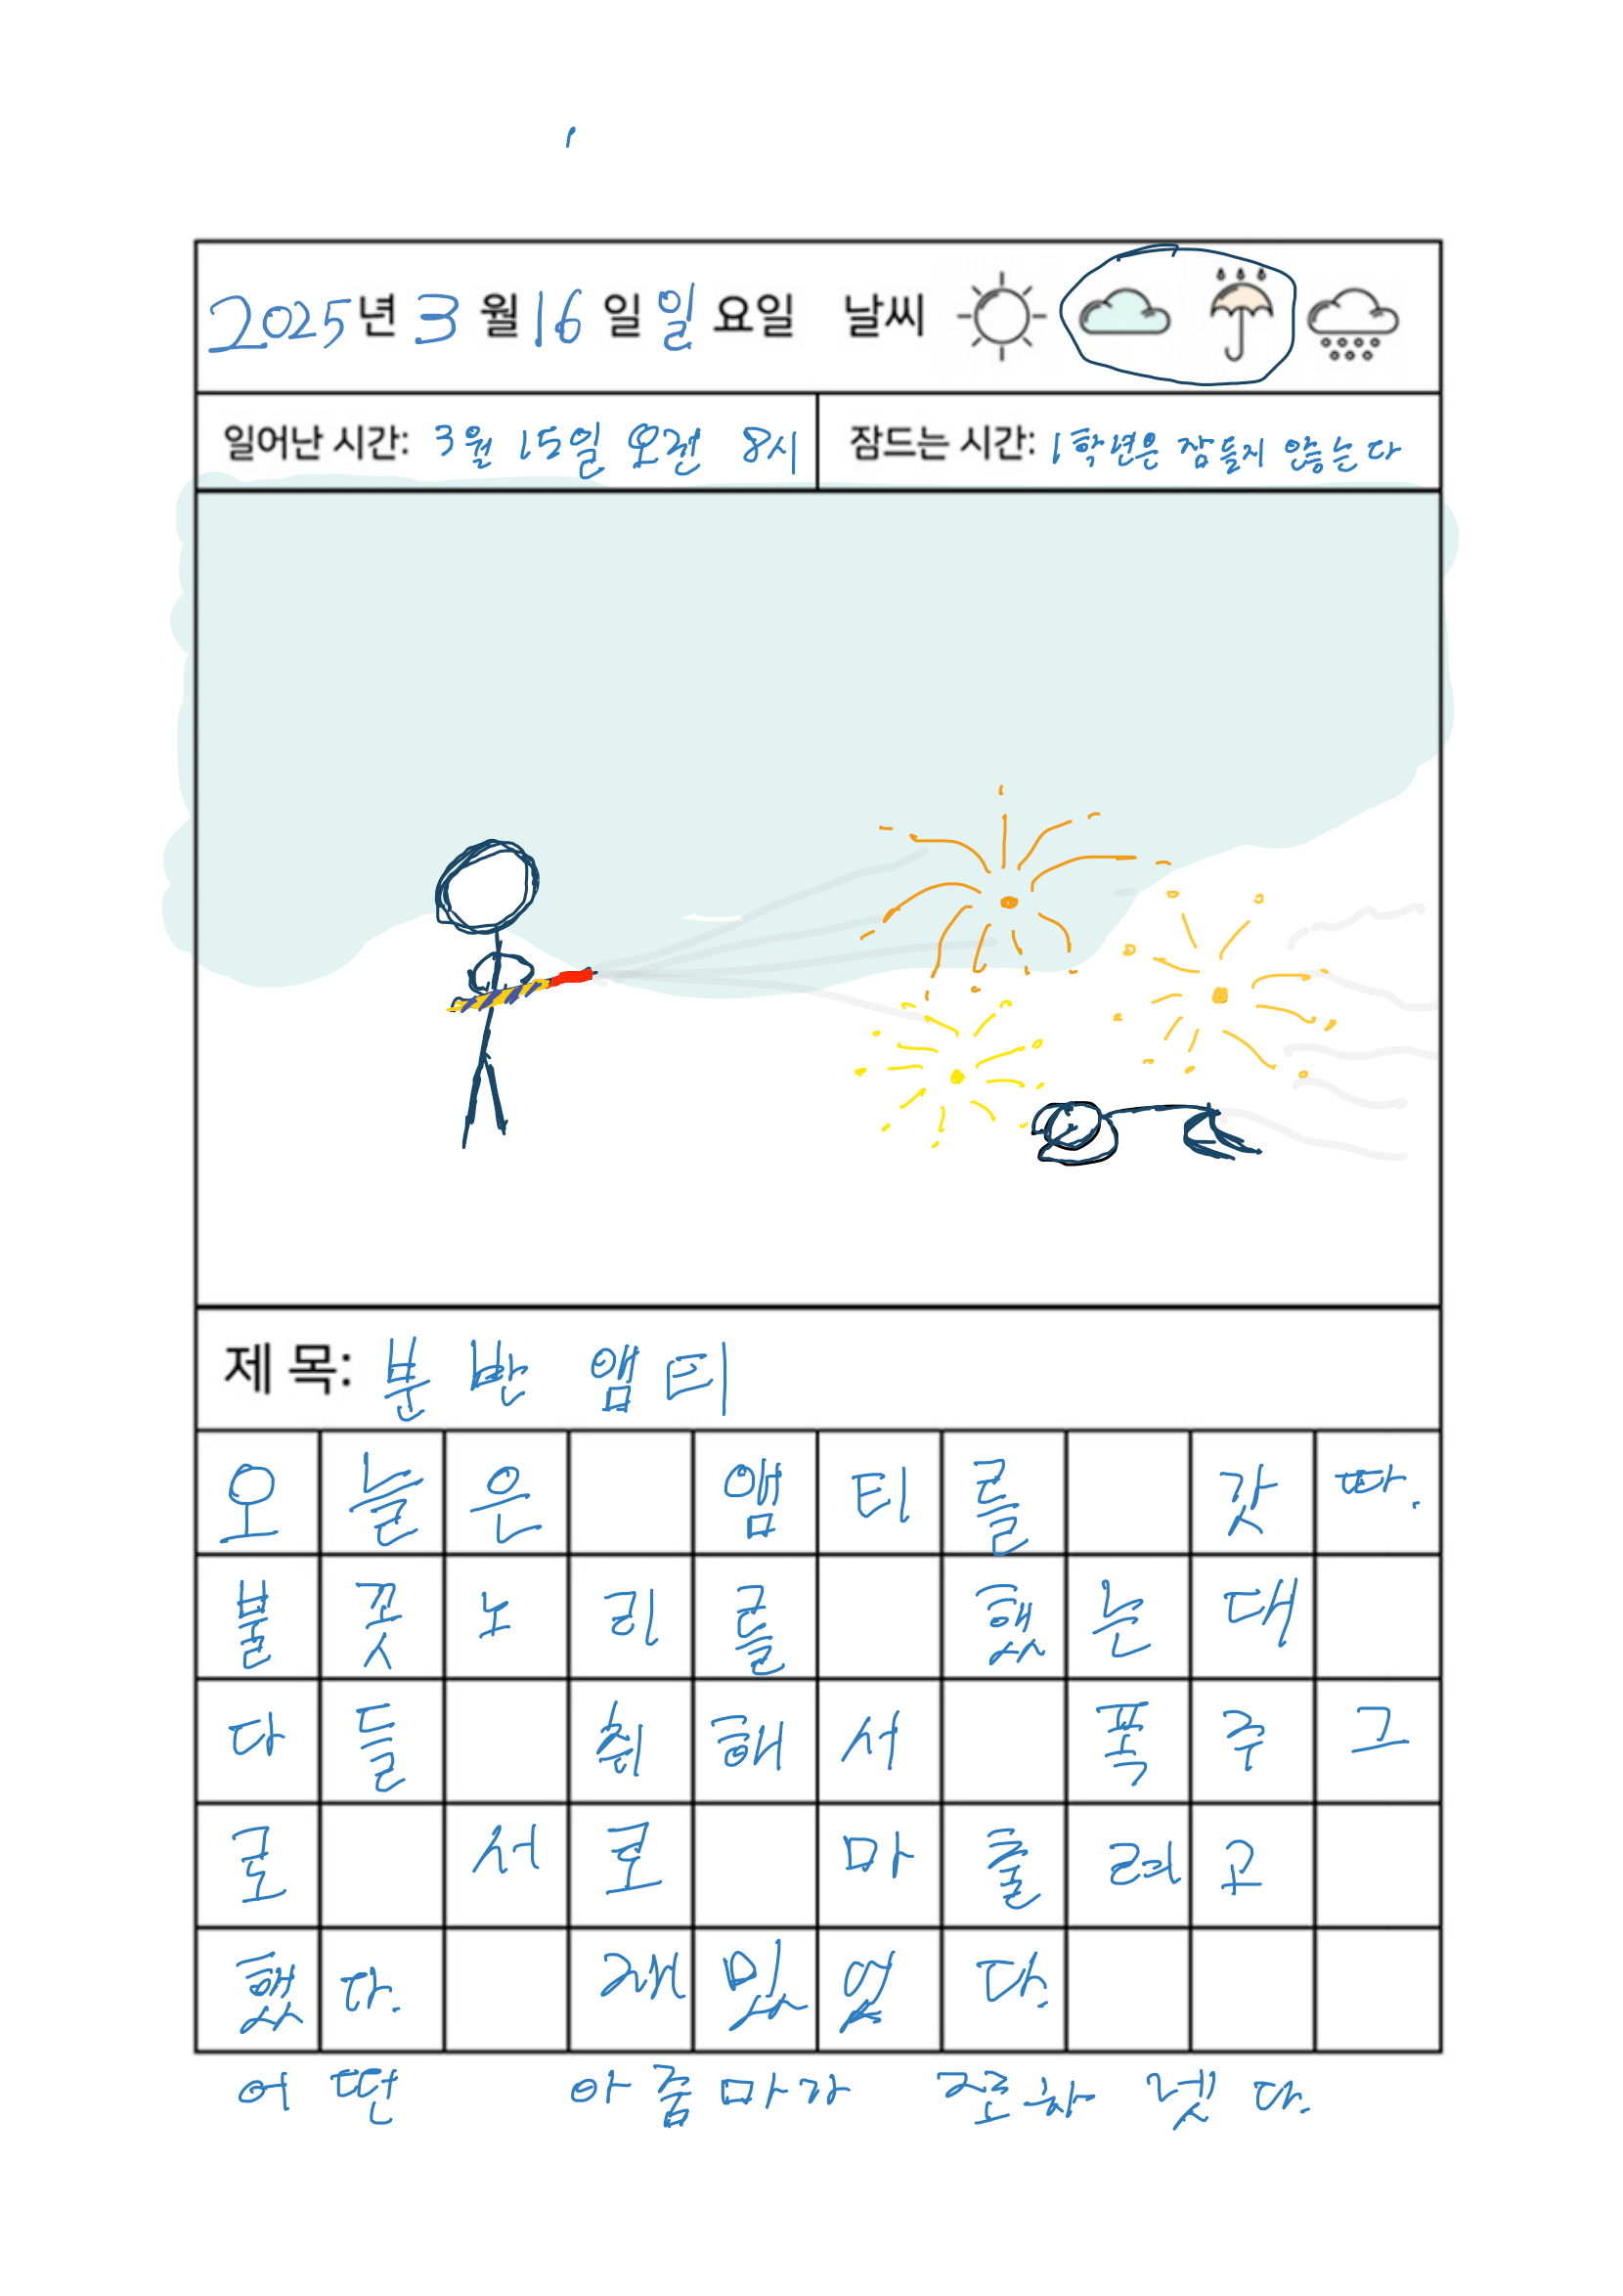 2025년 3월 16일 일요일 날씨
일어난 시간: 3월 15일 오전 8시 잠드는 시간: 1학년은 잠들지 않는다
제 목: 분반 앰티
오늘은 앰티를 갓따.
불꽃노리를 했는대
다들 취해서 폭주그
로 서로 마출려고
했다. 재밌었다.
어떤 아줌마가 전화 넷다.